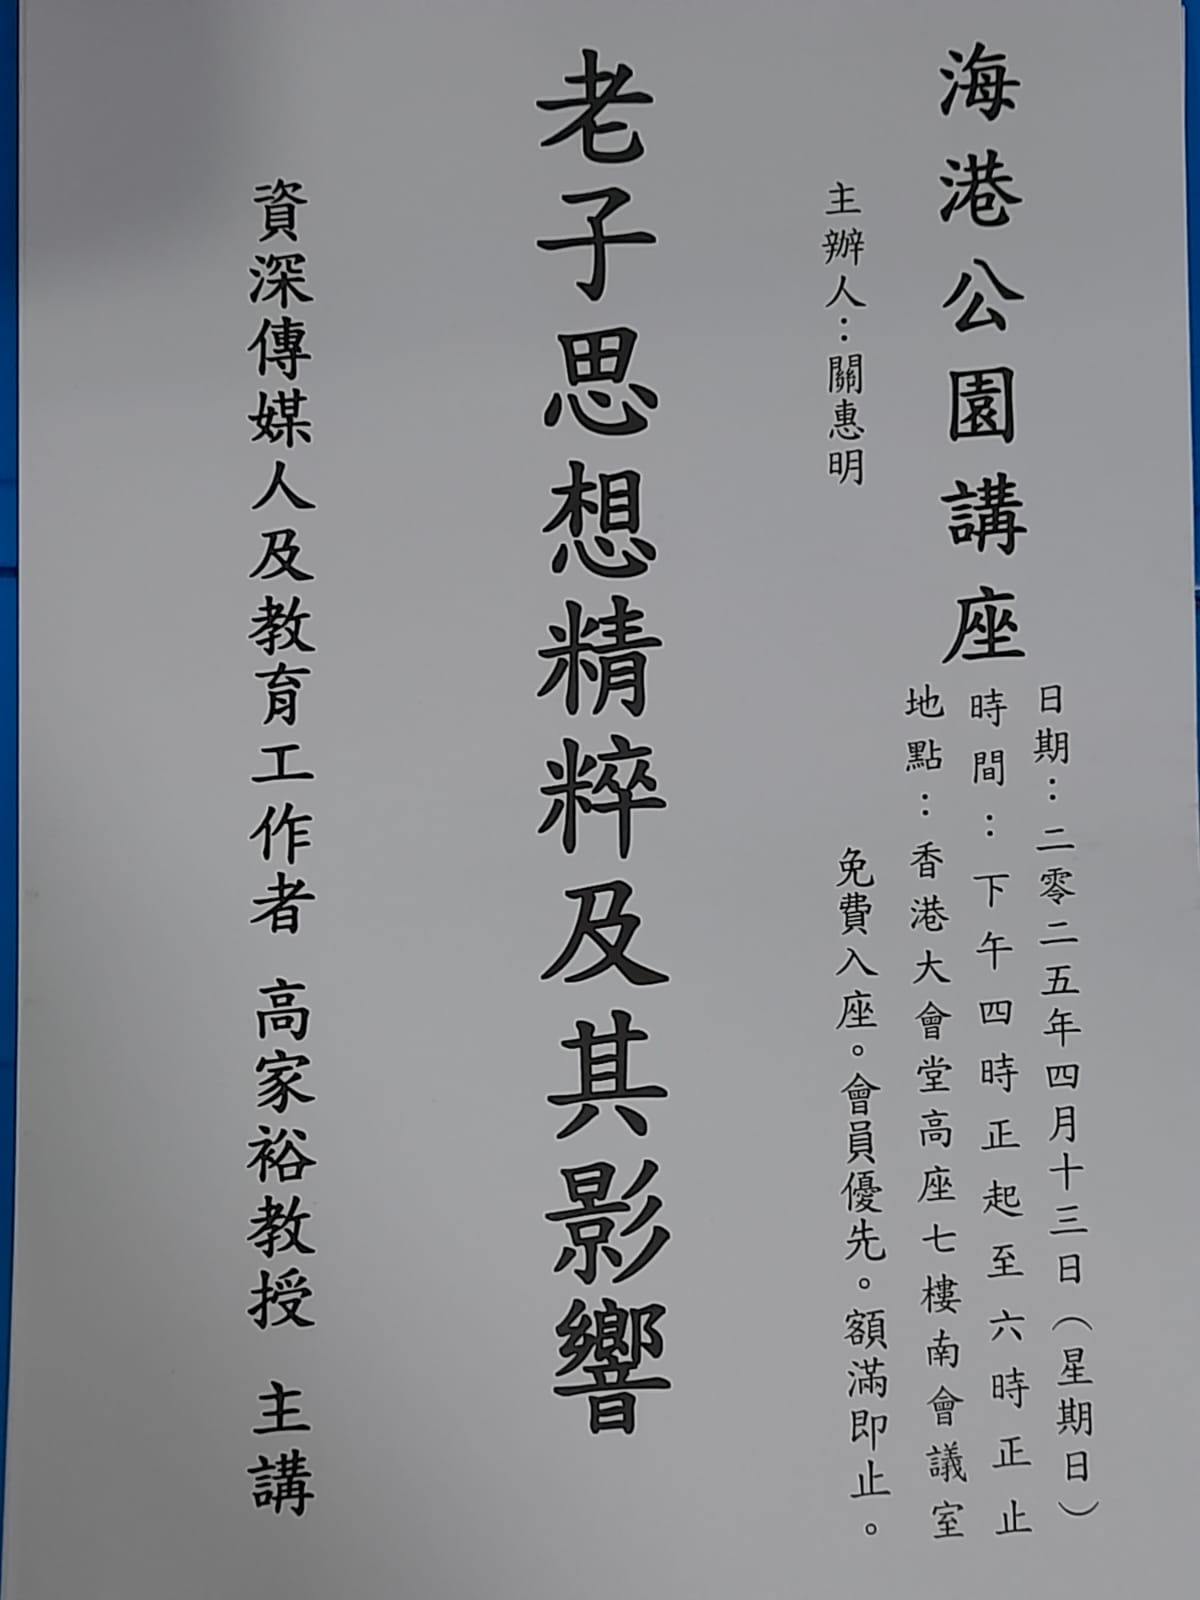 海港公園講座
日期：二零二五年四月十三日（星期日）
時間：下午四時正起至六時正止
地點：香港大會堂高座七樓南會議室
主辦人：關惠明
免費入座。會員優先。額滿即止。
老子思想精粹及其影響
資深傳媒人及教育工作者 高家裕教授 主講